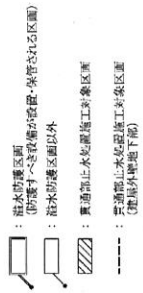 ：溢水防護区画
(防護すべき設備が設置・保管される区画)
：溢水防護区画以外
：貫通部止水処置施工対象区画
：貫通部止水処置施工対象区画
(建屋外壁地下部)